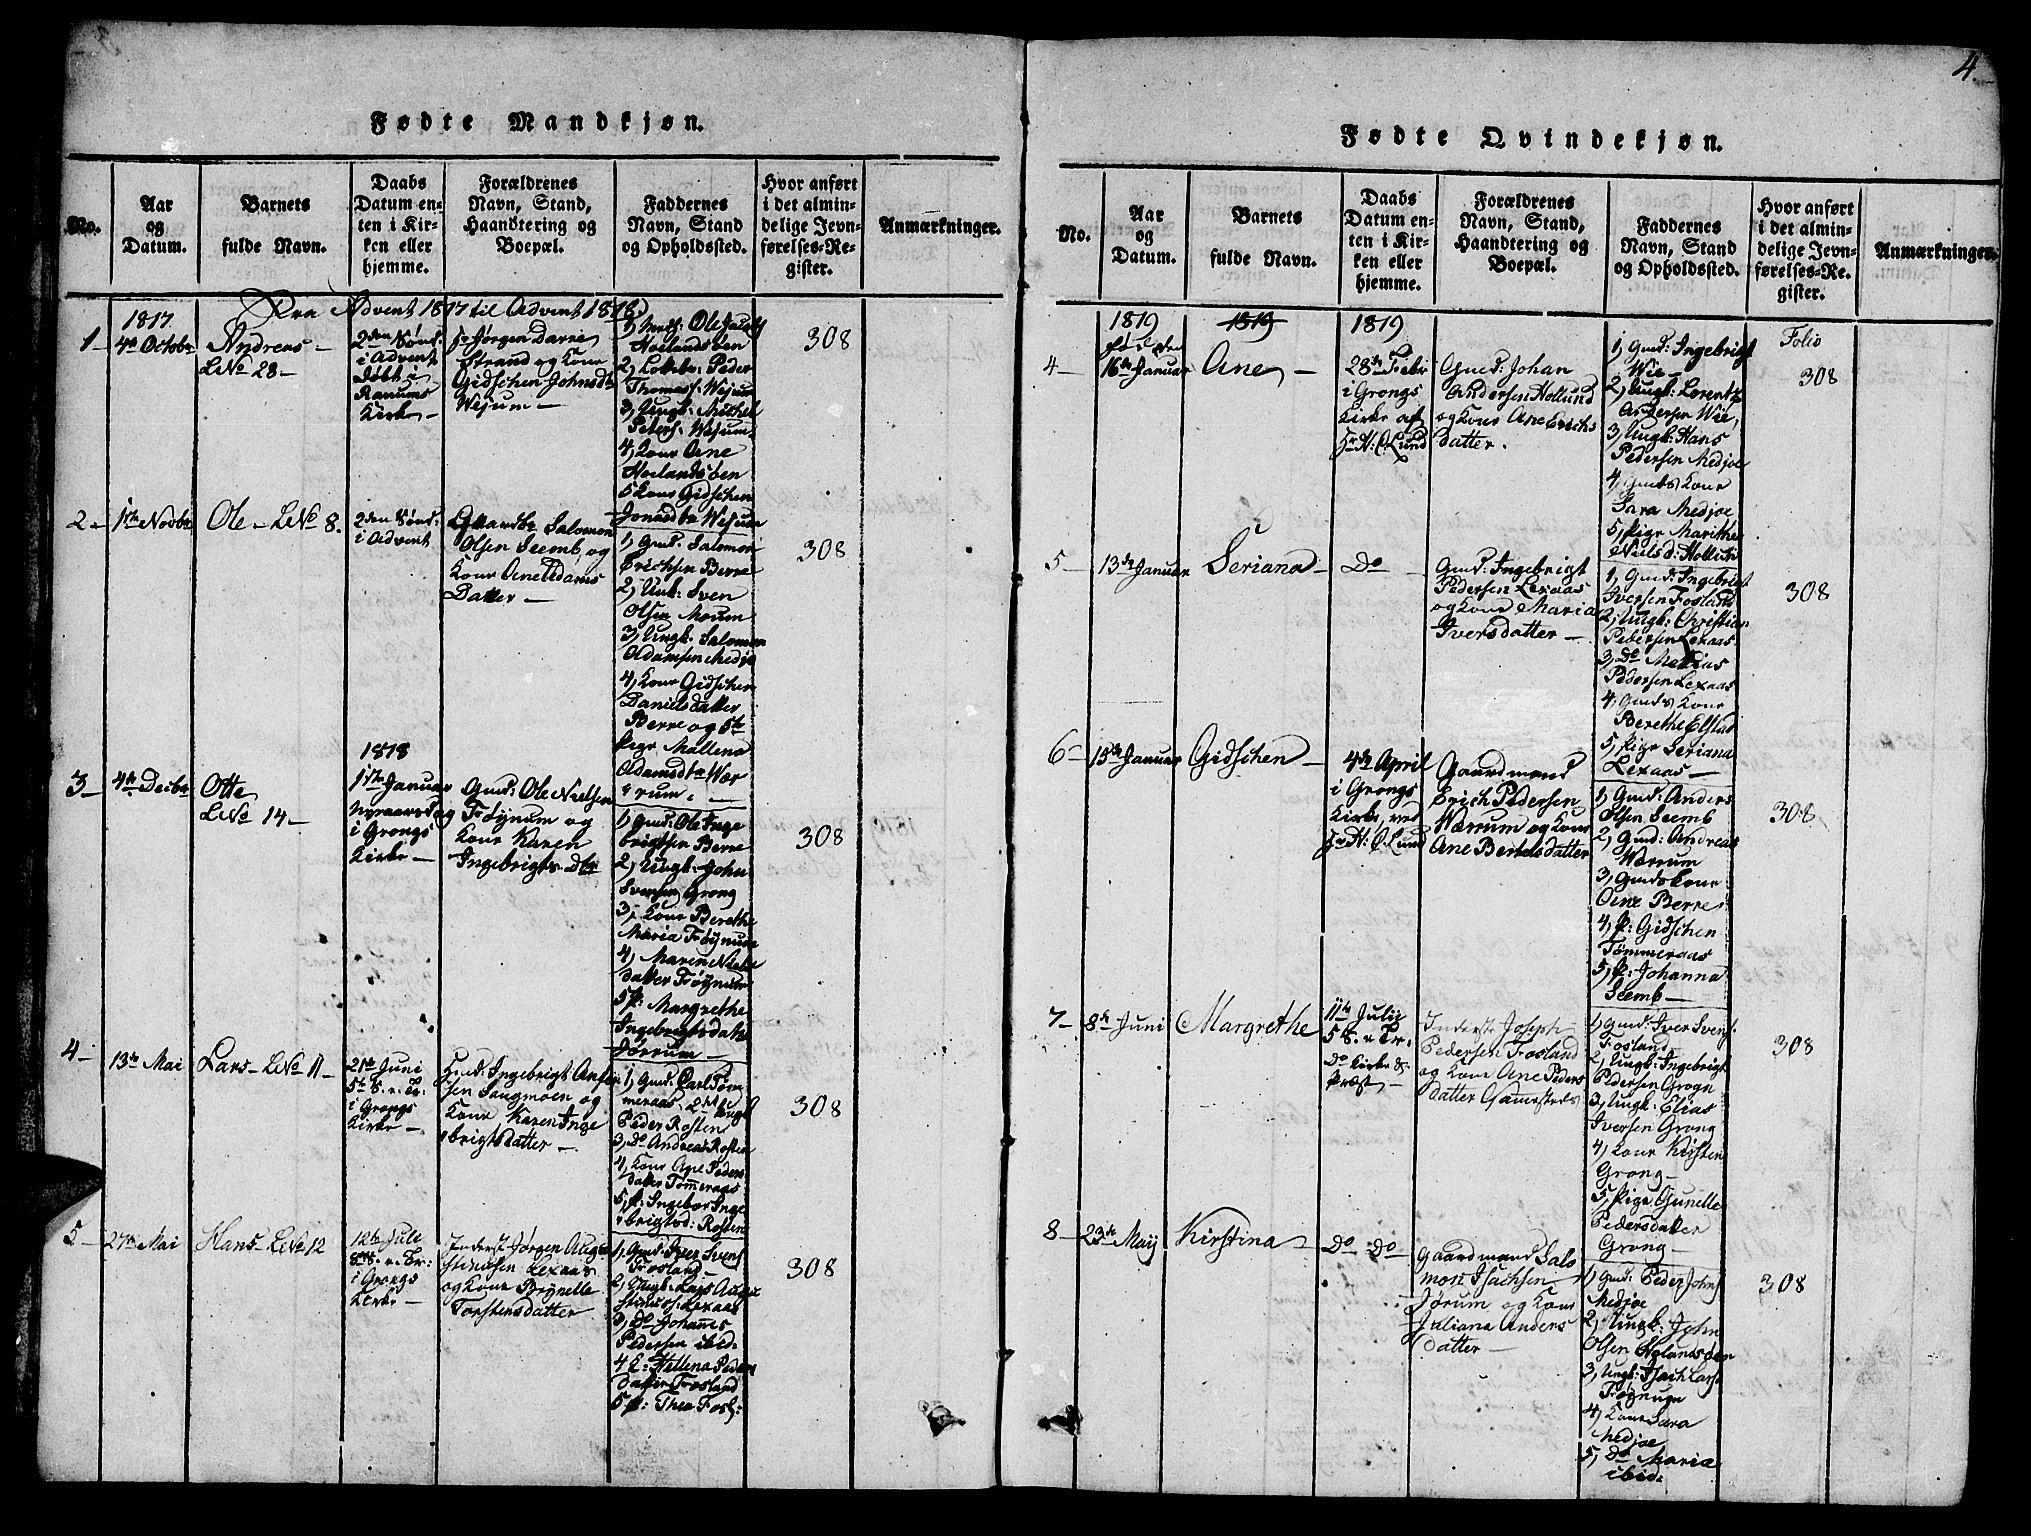 4.
Fødte Mandkjøn.
No.
Aar
og
Datum.
Barnets
fulde Navn.
Daabs
Datum en-
ten i Kir-
ken eller
hjemme.
Forældrenes
Navn, Stand,
Haandtering og
Boepæl.
Faddernes
Navn, Stand
og Opholdssted.
Hvor anført
i det almin-
delige Jevn-
førelses-Re-
gister.
Anmærkninger.
Fra Advent 1817 til Advent 1818.
1817
1
4de Octobr
Andreas
LNo 28
2den Sønd:
i Advent
døbt i
Ranums
Kirke
Hr Jørgen Darre
Strand og Kone
Gidschen Johnsdtr
Wejum
Hoelandsøen
2, Peder
Thomas: Wejum
3, Ungk: Michel
Peters: Wejum
4, Kone Ane
Hoelandsøen
5 Kone Gidschen
Jonasdtr Wejum
308
2
1ste Novbr
Ole LNo 8.
2den Sønd:
i Advent
Gaardbr Salomon
Olsen Seemb, og
Kone Ane Adams
Datter
1, Gmd: Salomon
Erichsen Berre
2, Unk: Sven
Olsen Moum
3, Ungk: Salomon
Adamsen Medjo
4, Kone Gidschen
Danielsdatter
Berre og 5te
Pige Mallena
Adamsdtr Wær
rum.
308
3
4de Decbr
Otte
LNo 14
1818
1ste Januar
Nyeaarsdag
i Grongs
Kirke
Gmd: Ole Nielsen
Føynum og
Kone Karen
Ingebrigts Dtr
1, Gmd: Ole Inge
brigtsen Berre
2, Ungk: John
Svensen Grong
3, Kone Berethe
Maria Føynum
4, Maren Niels
datter Føynum
5 P: Margrethe
Ingebrigtsdatt
Jørrum
308
4
13de Mai
Lars LNo 11
21de Juni
5te S. e. Tr:
i Grongs
Kirke
Gmd: Ingebrigt
sen Sangmoen og
Kone Karen Inge
brigtsdatter
1, Gmd: Carl Tøm
meraas, 2de Ungk
Peder Rosten
3, Do Andreas Rosten
4, Kone Ane Peders
datter Tømmeraas
5, P: Ingebor Inge
brigtsd: Rosten
308
5
27de Mai
Hans LNo 12
12te Julie
8de S. e. Tr:
i Grongs
Kirke
Inderst Jørgen Augu
stinusen Lexaas
og Kone Brynelle
Torstensdatter
1, Gmd: Iver Svens
Fosland
2, Ungk: Lars Augu
stinus: Lexaas
3, Do Johannes
Pedersen ibid:
4 K: Hellena Peders
datter Fosland
5 P: Thea Fosl:
308
Fødte Qvindekjøn.
No.
Aar
og
Datum.
Barnets
fulde Navn.
Daabs
Datum en-
ten i Kir-
ken eller
hjemme.
Forældrenes
Navn, Stand,
Haandtering og
Boepæl.
Faddernes
Navn, Stand
og Opholdssted.
Hvor anført
i det almin-
delige Jevn-
førelses-Re-
gister.
Anmærkninger.
1819
1819
1819
4
født den
16de Januar
Ane
28de Febr
i Grongs
Kirke af
Hr N: O. Lund
Gmd: Johan
Andersen Hollund
og Kone Ane Erichs
datter.
1, Gmd: Ingebrigt
Wie
2, Ungk: Lorentz
Andersen Wie,
3, Ungk: Hans
Pedersen Medjoe
4, Gmds Kone
Sara Medjoe
5, Pige Marithe
Nielsd: Hollund
Folio
308
5
13de Januar
Seriana
Do
Gmd: Ingebrigt
Pedersen Lexaas
og Kone Maria
Iversdatter
1, Gmd: Ingebrigt
Iversen Fosland
2, Ungk: Christian
Pedersen Lexaas
3, Do Mathias
Pedersen Lexaas
4, Gmds Kone
Berethe Elstad
5, Pige Seriana
Lexaas
308
6
15de Januar
Gidschen
4de April
i Grongs
Kirke, ved
Hr N: O. Lund
Gaardmand
Erich Pedersen
Wærrum og Kone
Ane Bertelsdatter
1, Gmd: Anders
Olsen Seemb
2, Gmd: Andreas
Wærrum
3, Gmds Kone
Ane Berre
4, P: Gidschen
Tømmeraas
5, P: Johanna
Seemb
308
7
8de Juni
Margrethe
11te Julij
5 S. e Tr.
Do Kirke &
Præst
Inderst Joseph
Pedersen Fosland
og Kone Ane Peders
datter Gamersteds
1, Gmd: Iver Svens:
Fosland
2, Ungk: Ingebrigt
Pedersen Grogn
3, Ungk: Elias
Iversen Grong
4, Kone Kirsten
Grong
5, Pige Gunelle
Pedersdatter
Grong
308
8
23de Maij
Kirstina
Do Do
Gaardmand Salo
mon Isachsen
Jørum og Kone
Juliana Anders
datter
1, Gmd: Peder Johns
Medjoe
2, Ungk: John
Olsen Holandsøen
3, Ungk: Isach Lars:
Føynum
4, Kone Sara
Medjoe
5, Do Maria
ibid:
308